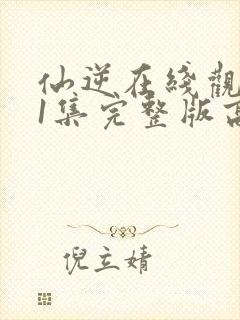 仙逆在綫觀
1集完整版高
倪立婧